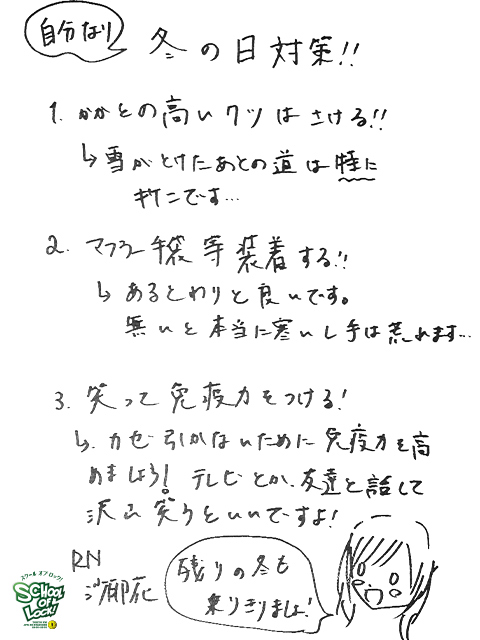 自分なり
冬の日対策!!
1. かかとの高いクツはさける!!
↳雪がとけたあとの道は特に
キケンです…
2. マフラー手袋等装着する!!
↳あるとわりと良いです。
無いと本当に寒いし手は荒れます…
3. 笑って免疫力をつける!
↳カゼ引かないために免疫力を高
めましょう! テレビとか、友達と話して
沢山笑うといいですよ!
RN
残りの冬も
乗りきりましょ!
スクールオブロック!
SCHOOL
OF
LOCK!